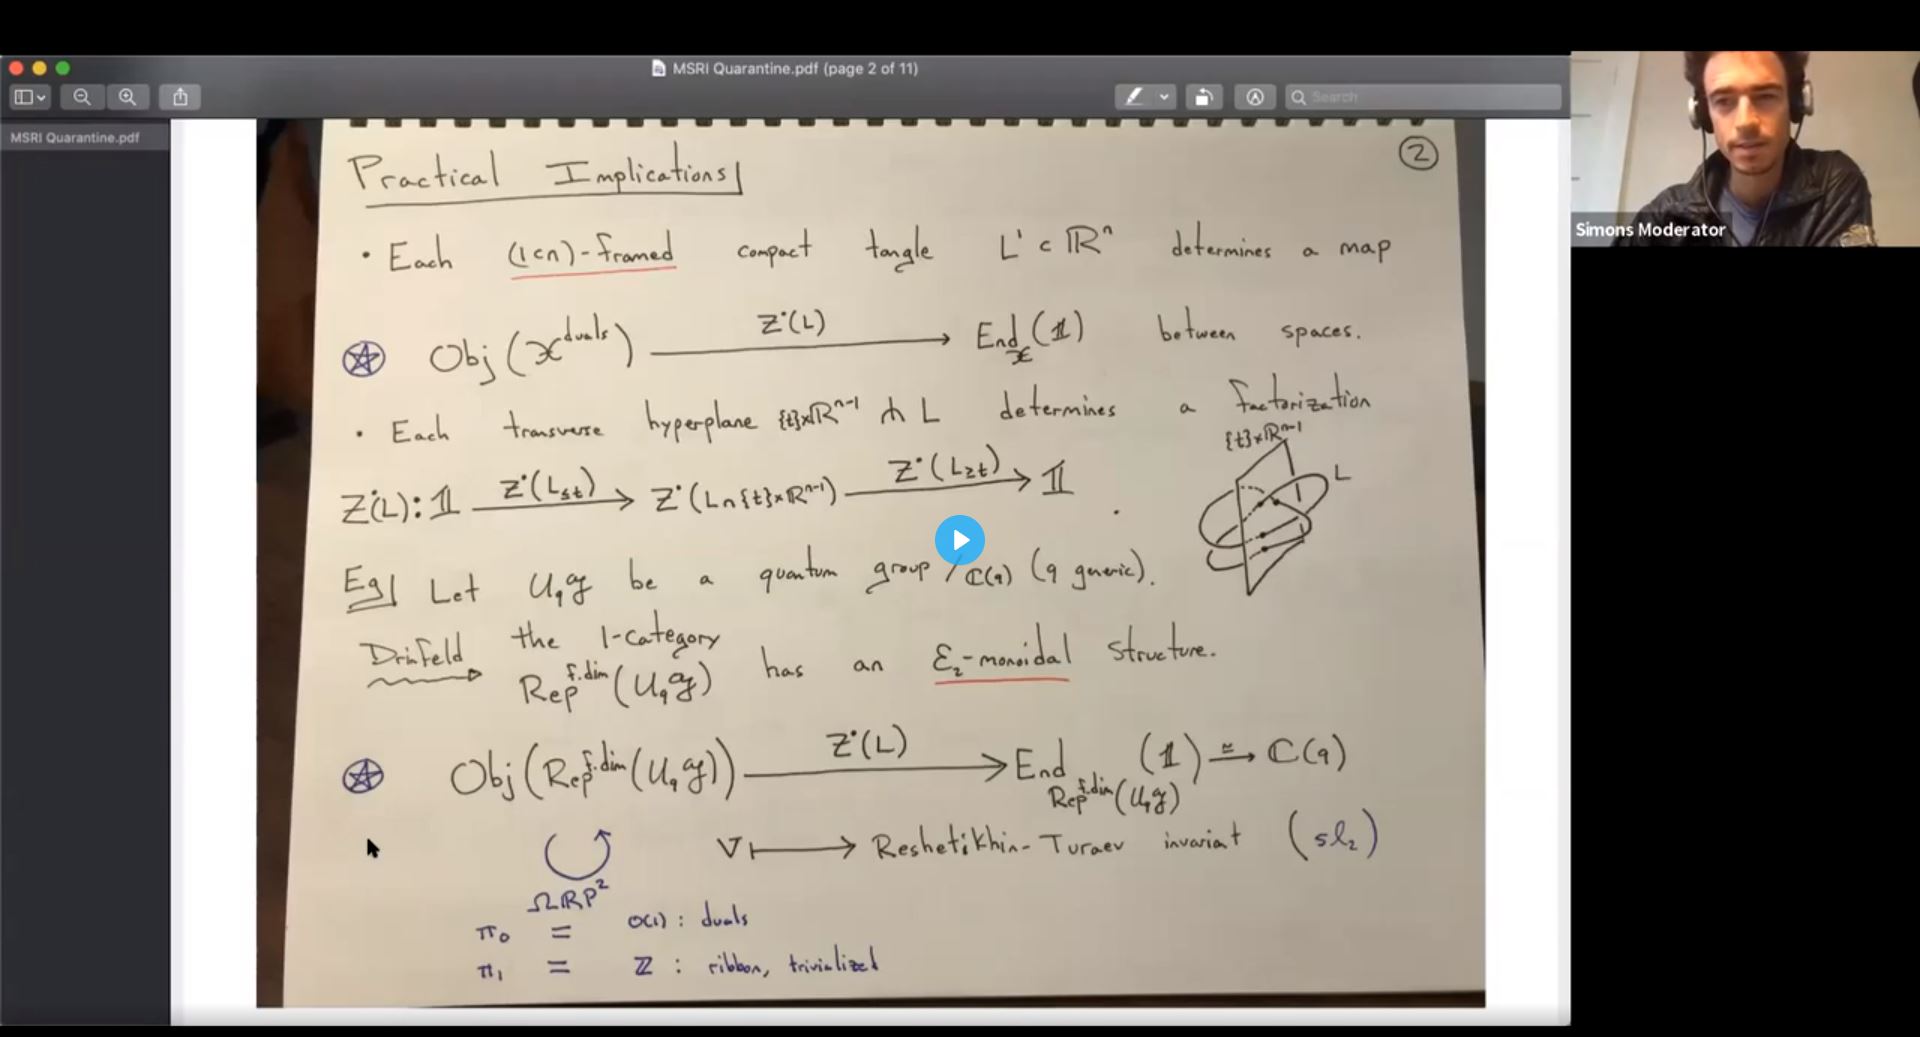 MSRI Quarantine.pdf (page 2 of 11)
Search
MSRI Quarantine.pdf
Simons Moderator
Practical Implications
②
• Each (1⊂n)-framed compact tangle L¹ ⊂ ℝⁿ determines a map
Obj(𝒳^duals) —Z•(L)→ End_𝒳(𝟙) between spaces.
• Each transverse hyperplane {t}×ℝⁿ⁻¹ ⋔ L determines a factorization
{t}×ℝⁿ⁻¹
L
Z•(L): 𝟙 —Z•(L≤t)→ Z•(L∩{t}×ℝⁿ⁻¹) —Z•(L≥t)→ 𝟙.
Eg| Let U_q𝔤 be a quantum group /ℂ(q) (q generic).
Drinfeld the 1-category Rep^f.dim(U_q𝔤) has an ℰ₂-monoidal structure.
Obj(Rep^f.dim(U_q𝔤)) —Z•(L)→ End_Rep^f.dim(U_q𝔤)(𝟙) ≃→ ℂ(q)
V ↦ Reshetikhin-Turaev invariant (sl₂)
ΩℝP²
π₀ = O(1) : duals
π₁ = ℤ : ribbon, trivialized